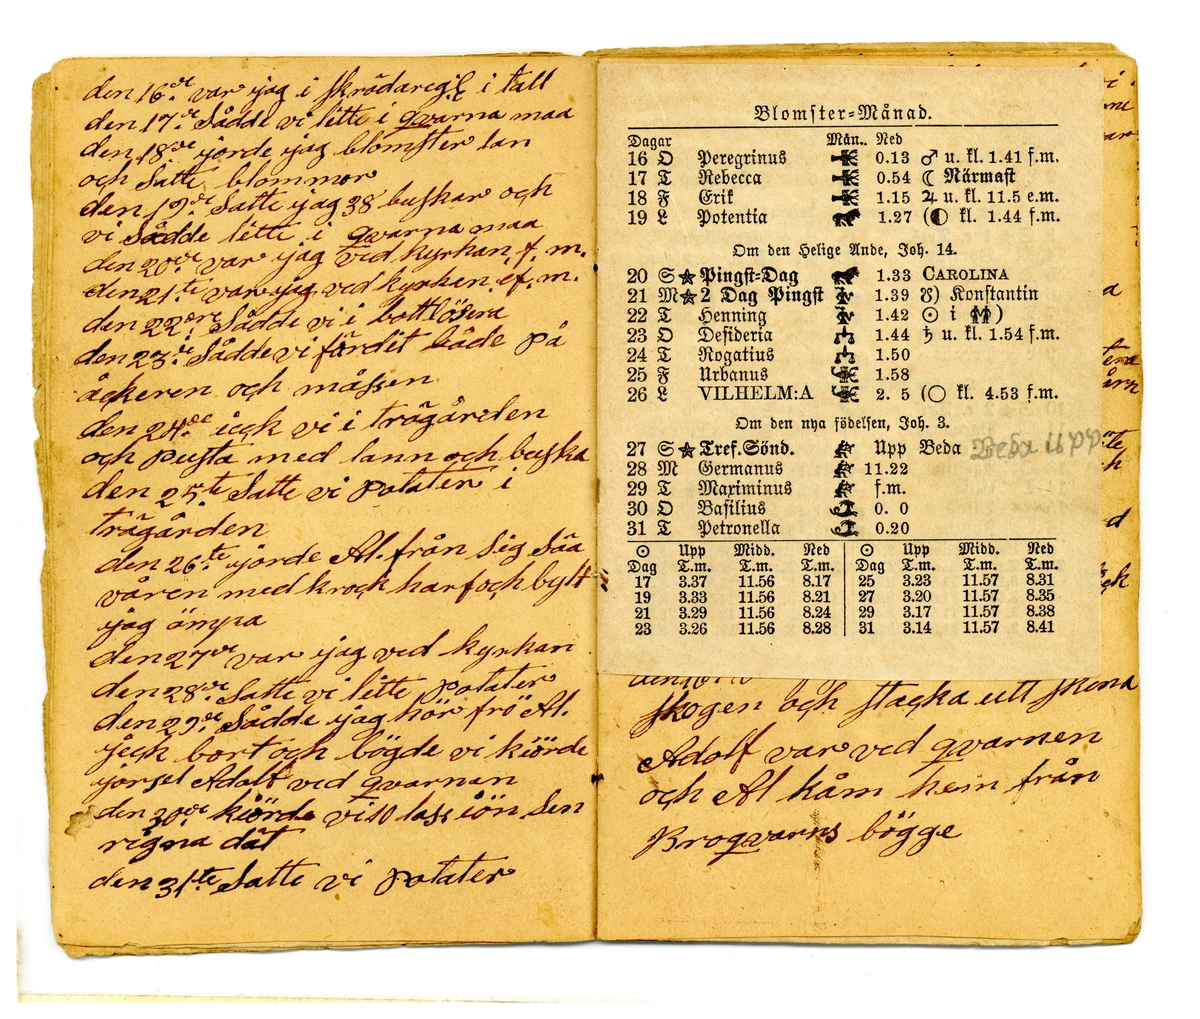 den 16de var jag i skrädaregil i tall
den 17de Sådde vi lite i qvarna maa
den 18de jorde jag blomster lan
och Satte blommor
den 19de Satte jag 38 buskar och
vi Sådde lite i qvarna maa
den 20de var jag ved kyrkan f. m.
den 21te var jag ved kyrkan ef. m.
den 22dre Sådde vi i bottlösena
den 23de Sådde vi färdit både på
åckeren och måssen
den 24de icck vi i trägården
och pusta med lann och buska
den 25te Satte vi potater i
trägården
den 26te jorde Al. från sig såa
våren med krock harf och bylt
jag ömpa
den 27de var jag ved kyrkan
den 28de Satte vi lite potater
den 29de Sådde jag hör frö Al.
jeck bort och bögde vi kiörde
jörsel Adolf ved qvarnan
den 30de kiörde vi 10 lass iön Sen
rigna dät
den 31te Satte vi potater
Blomster=Månad.
Dagar Mån. Ned
16 O Peregrinus 0.13 ♂ u. kl. 1.41 f.m.
17 T Rebecca 0.54 ☾ Närmast
18 F Erik 1.15 ♃ u. kl. 11.5 e.m.
19 L Potentia 1.27 (◐ kl. 1.44 f.m.
Om den Helige Ande, Joh. 14.
20 S ★ Pingst=Dag 1.33 CAROLINA
21 M ★ 2 Dag Pingst 1.39 ☋) Konstantin
22 T Henning 1.42 ☉ i ♊)
23 O Desideria 1.44 ♄ u. kl. 1.54 f.m.
24 T Rogatius 1.50
25 F Urbanus 1.58
26 L VILHELM:A 2. 5 (○ kl. 4.53 f.m.
Om den nya födelsen, Joh. 3.
27 S ★ Tref.Sönd. Upp Beda
28 M Germanus 11.22
29 T Maximinus f.m.
30 O Basilius 0. 0
31 T Petronella 0.20
☉ Upp Midd. Ned ☉ Upp Midd. Ned
Dag T.m. T.m. T.m. Dag T.m. T.m. T.m.
17 3.37 11.56 8.17 25 3.23 11.57 8.31
19 3.33 11.56 8.21 27 3.20 11.57 8.35
21 3.29 11.56 8.24 29 3.17 11.57 8.38
23 3.26 11.56 8.28 31 3.14 11.57 8.41
skogen och stacka utt skena
Adolf var ved qvarnen
och Al kåm hem från
Broqvarns bögge